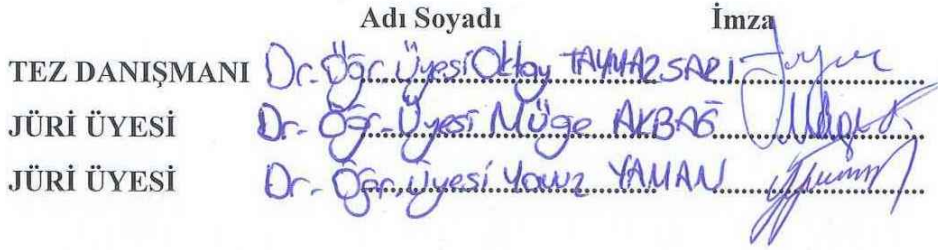 Adı Soyadı İmza
TEZ DANIŞMANI Dr. Öğr. Üyesi Oktay TAYMAZ SARI
JÜRİ ÜYESİ Dr. Öğr. Üyesi Müge AKBAĞ
JÜRİ ÜYESİ Dr. Öğr. Üyesi Yavuz YAMAN